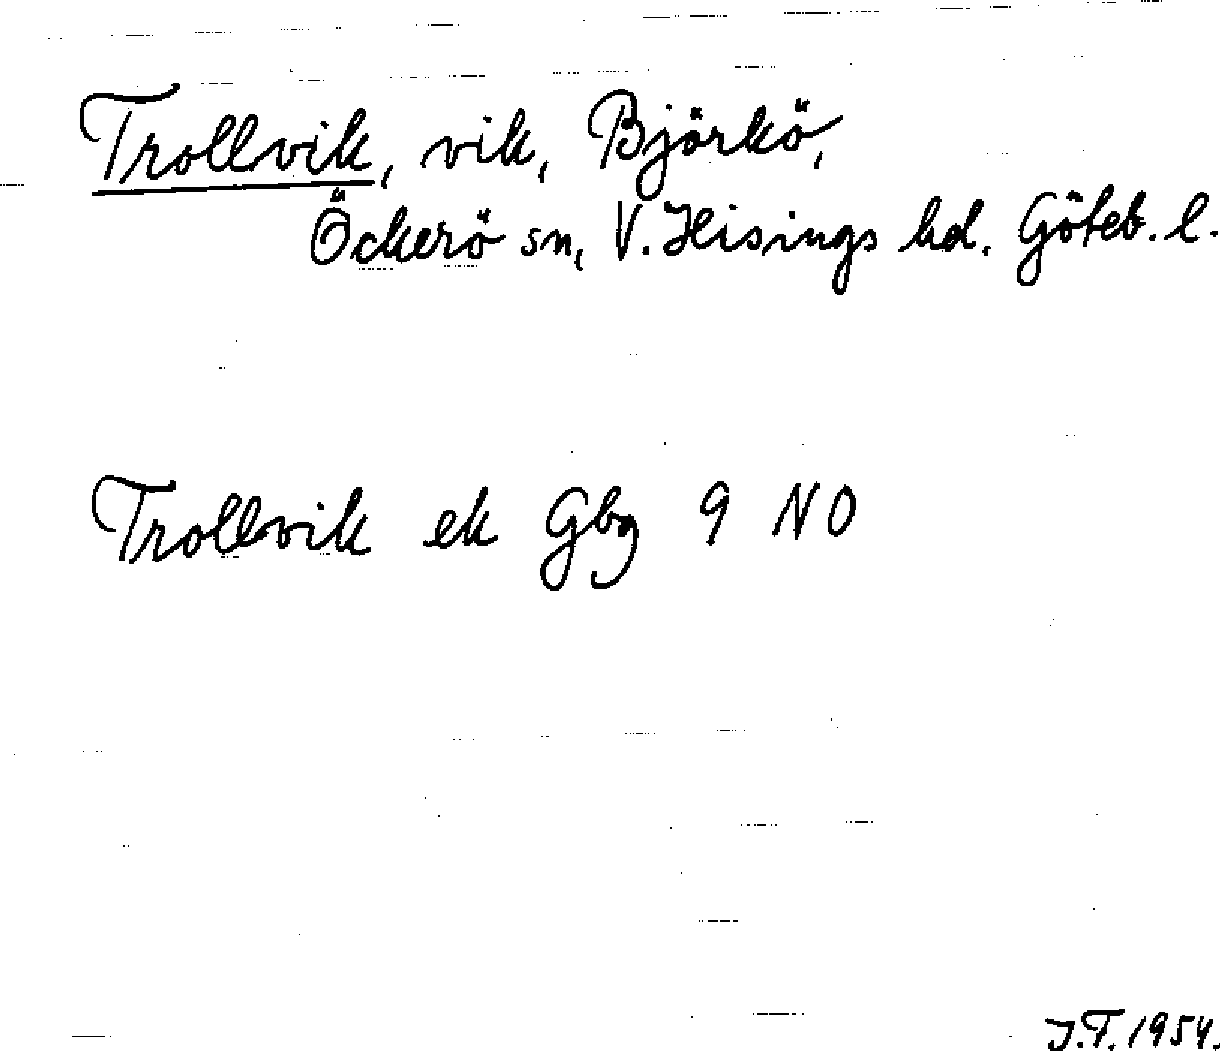 Trollvik, vik, Björkö,
Öckerö sn, V. Hisings hd. Göteb. l.
Trollvik ek Gbg 9 NO
J.T. 1954.